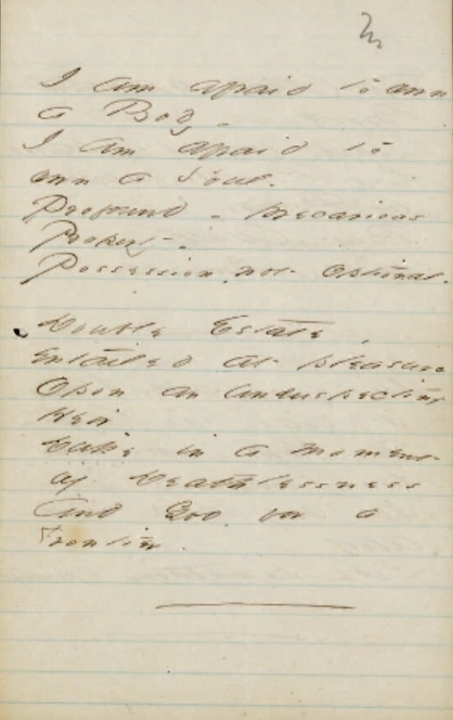 I am afraid to own
a Body -
I am afraid to
own a Soul.
Profound - precarious
Property -
Possession, not optional -
Double Estate,
entailed at pleasure
Opon an unsuspecting
Heir
Duke in a moment
of Deathlessness
And God, for a
Frontier.